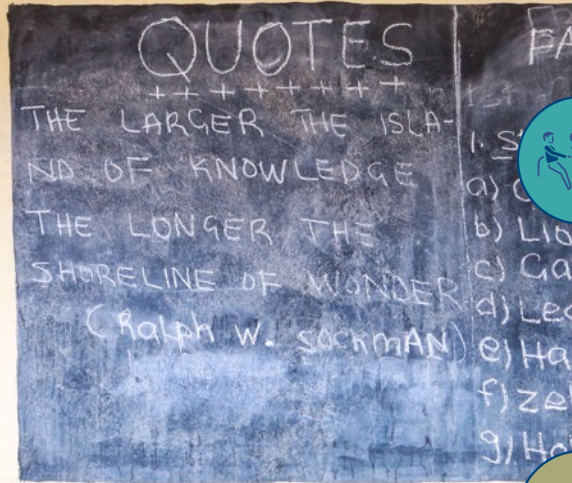 QUOTES
THE LARGER THE ISLA-
ND OF KNOWLEDGE
THE LONGER THE
SHORELINE OF WONDER
(Ralph W. SOCKMAN)
1.
a)
b)
c)
d)
e)
f)
g)